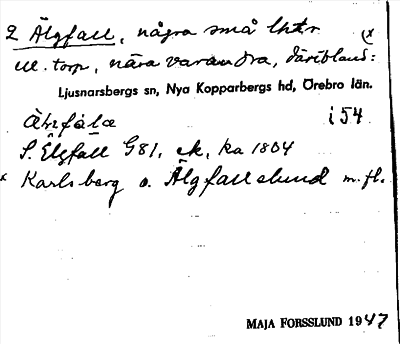 2 Älgfall, några små lhtr (x
m. torp, nära varandra, däribland:
Ljusnarsbergs sn, Nya Kopparbergs hd, Örebro län.
i 54.
S. Elgfall G81, ek, ka 1804
x Karlsberg o. Älgfallslund m. fl.
MAJA FORSSLUND 1947